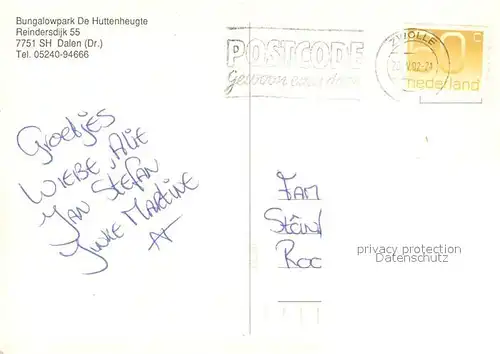 Bungalowpark De Huttenheugte
Reindersdijk 55
7751 SH Dalen (Dr.)
Tel. 05240-94666
POSTCODE
Gewoon even doen
ZWOLLE
60 c
nederland
Groetjes
WIEBE, ALIE
JAN STEFAN
JINKE MARTINE
FAM
Roc
privacy protection
Datenschutz